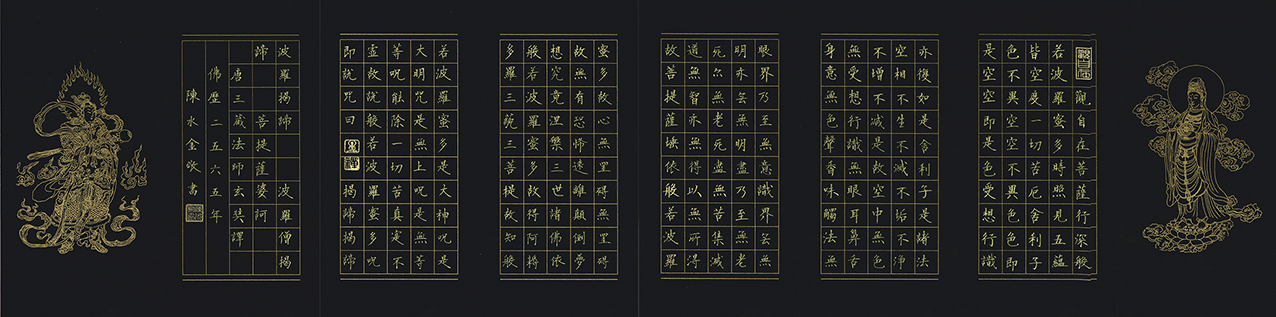 觀自在菩薩行深般
若波羅蜜多時照見五蘊
皆空度一切苦厄舍利子
色不異空空不異色色即
是空空即是色受想行識
亦復如是舍利子是諸法
空相不生不滅不垢不淨
不增不減是故空中無色
無受想行識無眼耳鼻舌
身意無色聲香味觸法無
眼界乃至無意識界无無
明亦无無明盡乃至無老
死亦無老死盡無苦集滅
道無智亦無得以無所得
故菩提薩埵依般若波羅
蜜多故心無罣礙無罣礙
故無有恐怖遠離顛倒夢
想究竟涅槃三世諸佛依
般若波羅蜜多故得阿耨
多羅三藐三菩提故知般
若波羅蜜多是大神呪是
大明咒是無上呪是無等
等呪能除一切苦真實不
虛故說般若波羅蜜多呪
即說咒曰 揭諦揭諦
波羅揭諦 波羅僧揭
諦 菩提薩婆訶
唐三藏法師玄奘譯
佛歷二五六五年
陳水金敬書